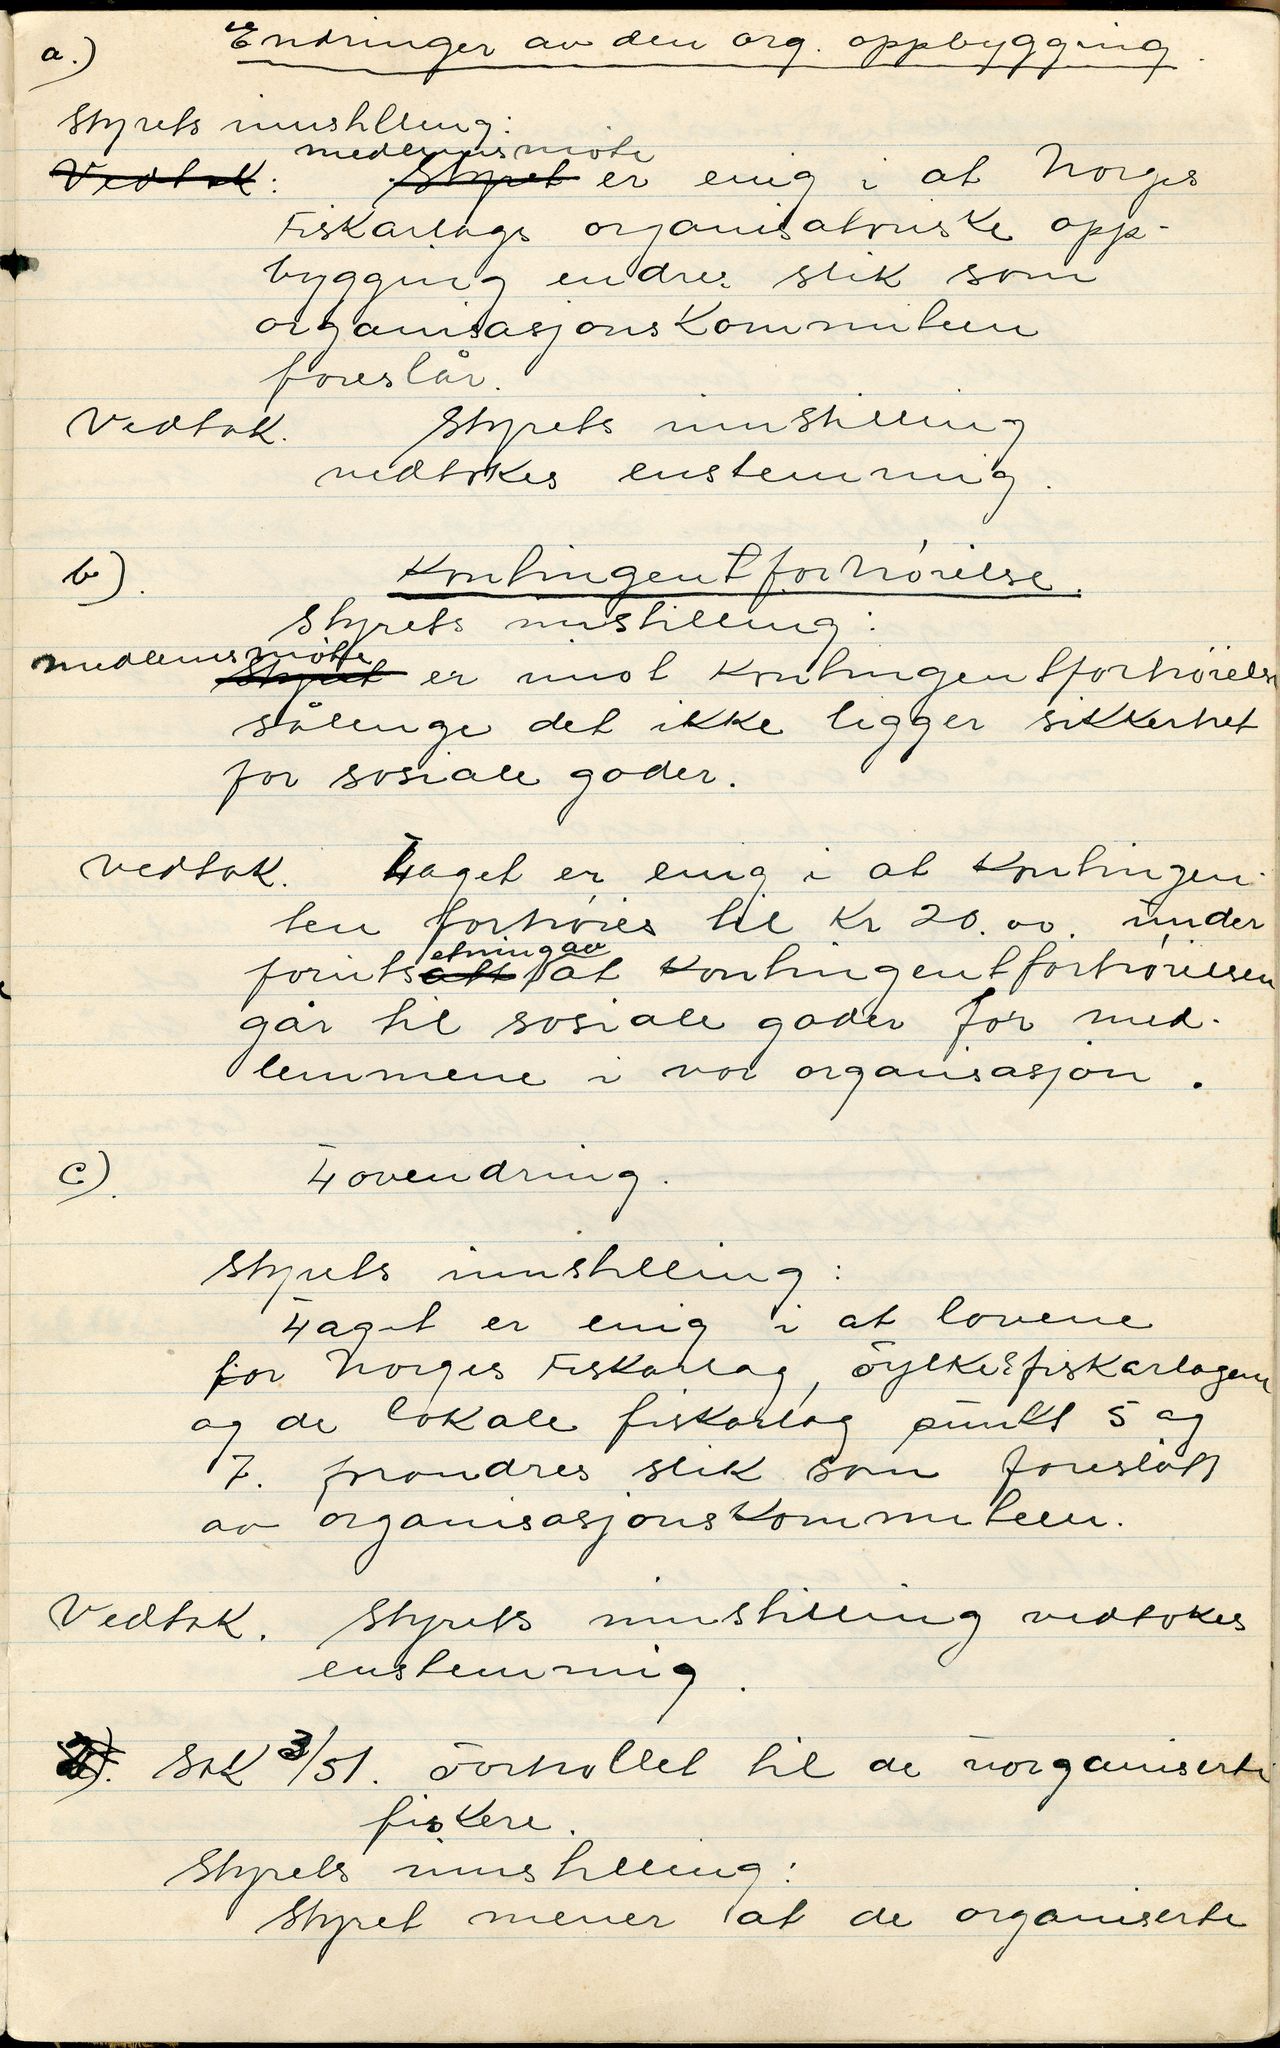 a.) Endringer av den org. oppbygging.
Styrets innstilling:
medlemsmøte
Vedtak: Styret er enig i at Norges
Fiskarlags organisatoriske opp-
bygging endres slik som
organisasjonskommiteen
foreslår.
Vedtak. Styrets innstilling
vedtakes enstemmig.
b). Kontingentforhøielse.
Styrets innstilling:
medlemsmøte
Styret er imot kontingentforhøielse
sålenge det ikke ligger sikkerhet
for sosiale goder.
Vedtak. Laget er enig i at kontingen-
ten forhøies til kr 20.00. under
etning av
forutsatt at kontingentforhøielsen
går til sosiale goder for med-
lemmene i vor organisasjon.
c). Lovendring.
Styrets innstilling:
Laget er enig i at lovene
for Norges Fiskarlag, Fylkesfiskarlagene
og de lokale fiskarlag punkt 5 og
7. forandres slik som foreslått
av organisasjonskommiteen.
Vedtak. Styrets innstilling vedtakes
enstemmig.
2). Sak 3/51. Forhollet til de uorganiserte
fiskere.
Styrets innstilling:
Styret mener at de organiserte